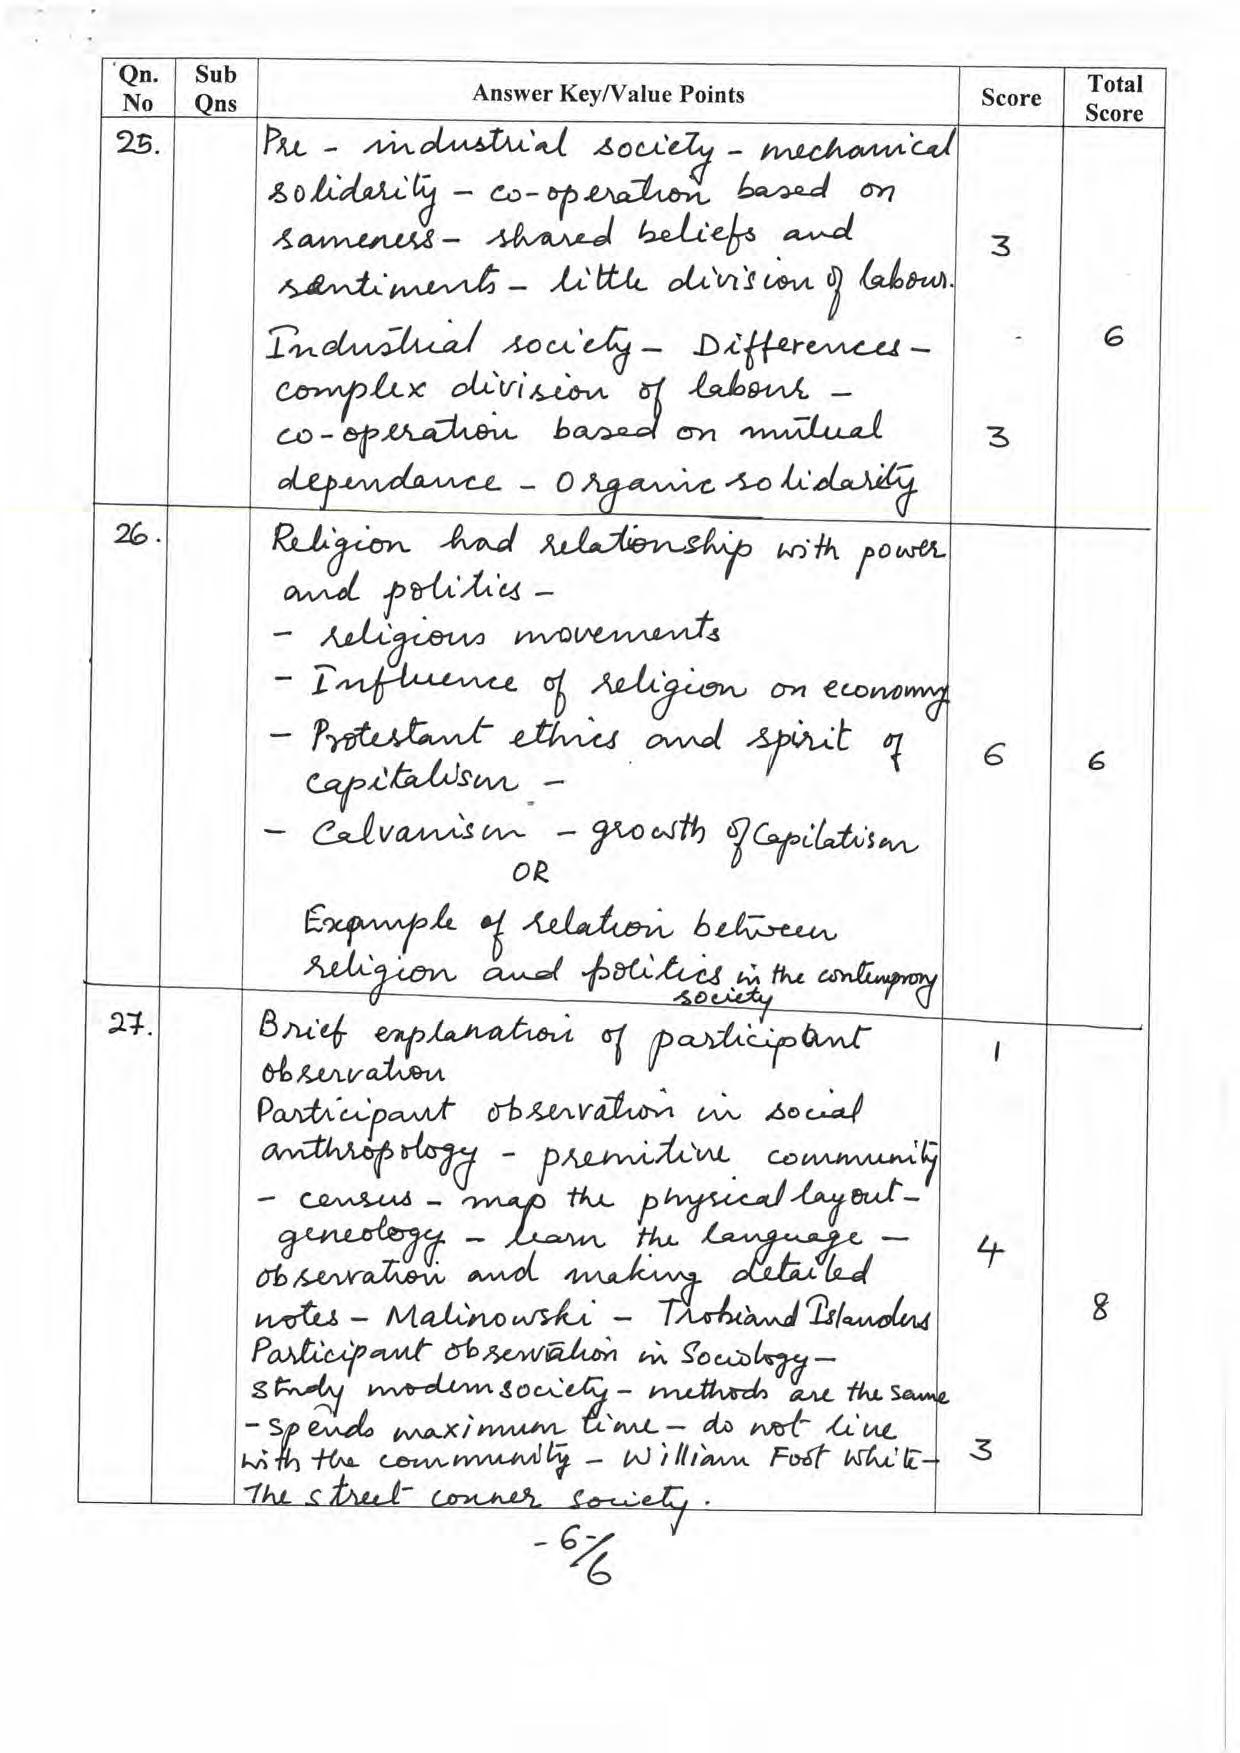 Qn. No Sub Qns Answer Key/Value Points Score Total Score
25. Pre - industrial society - mechanical
solidarity - co-operation based on
sameness - shared beliefs and 3
sentiments - little division of labour.
Industrial society - Differences - 6
complex division of labour -
co-operation based on mutual 3
dependance - Organic solidarity
26. Religion had relationship with power
and politics -
- religious movements
- Influence of religion on economy
- Protestant ethics and spirit of 6 6
capitalism -
- Calvanism - growth of Capilatism
OR
Example of relation between
religion and politics in the contemprory
society
27. Brief explanation of participant 1
observation
Participant observation in social
anthropology - premitive community
- census - map the physical layout -
geneology - learn the language - 4
observation and making detailed
notes - Malinowski - Trobiand Islanders 8
Participant observation in Sociology -
study modern society - methods are the same
- spends maximum time - do not live
with the community - William Foot White - 3
The street conner society.
- 6/6